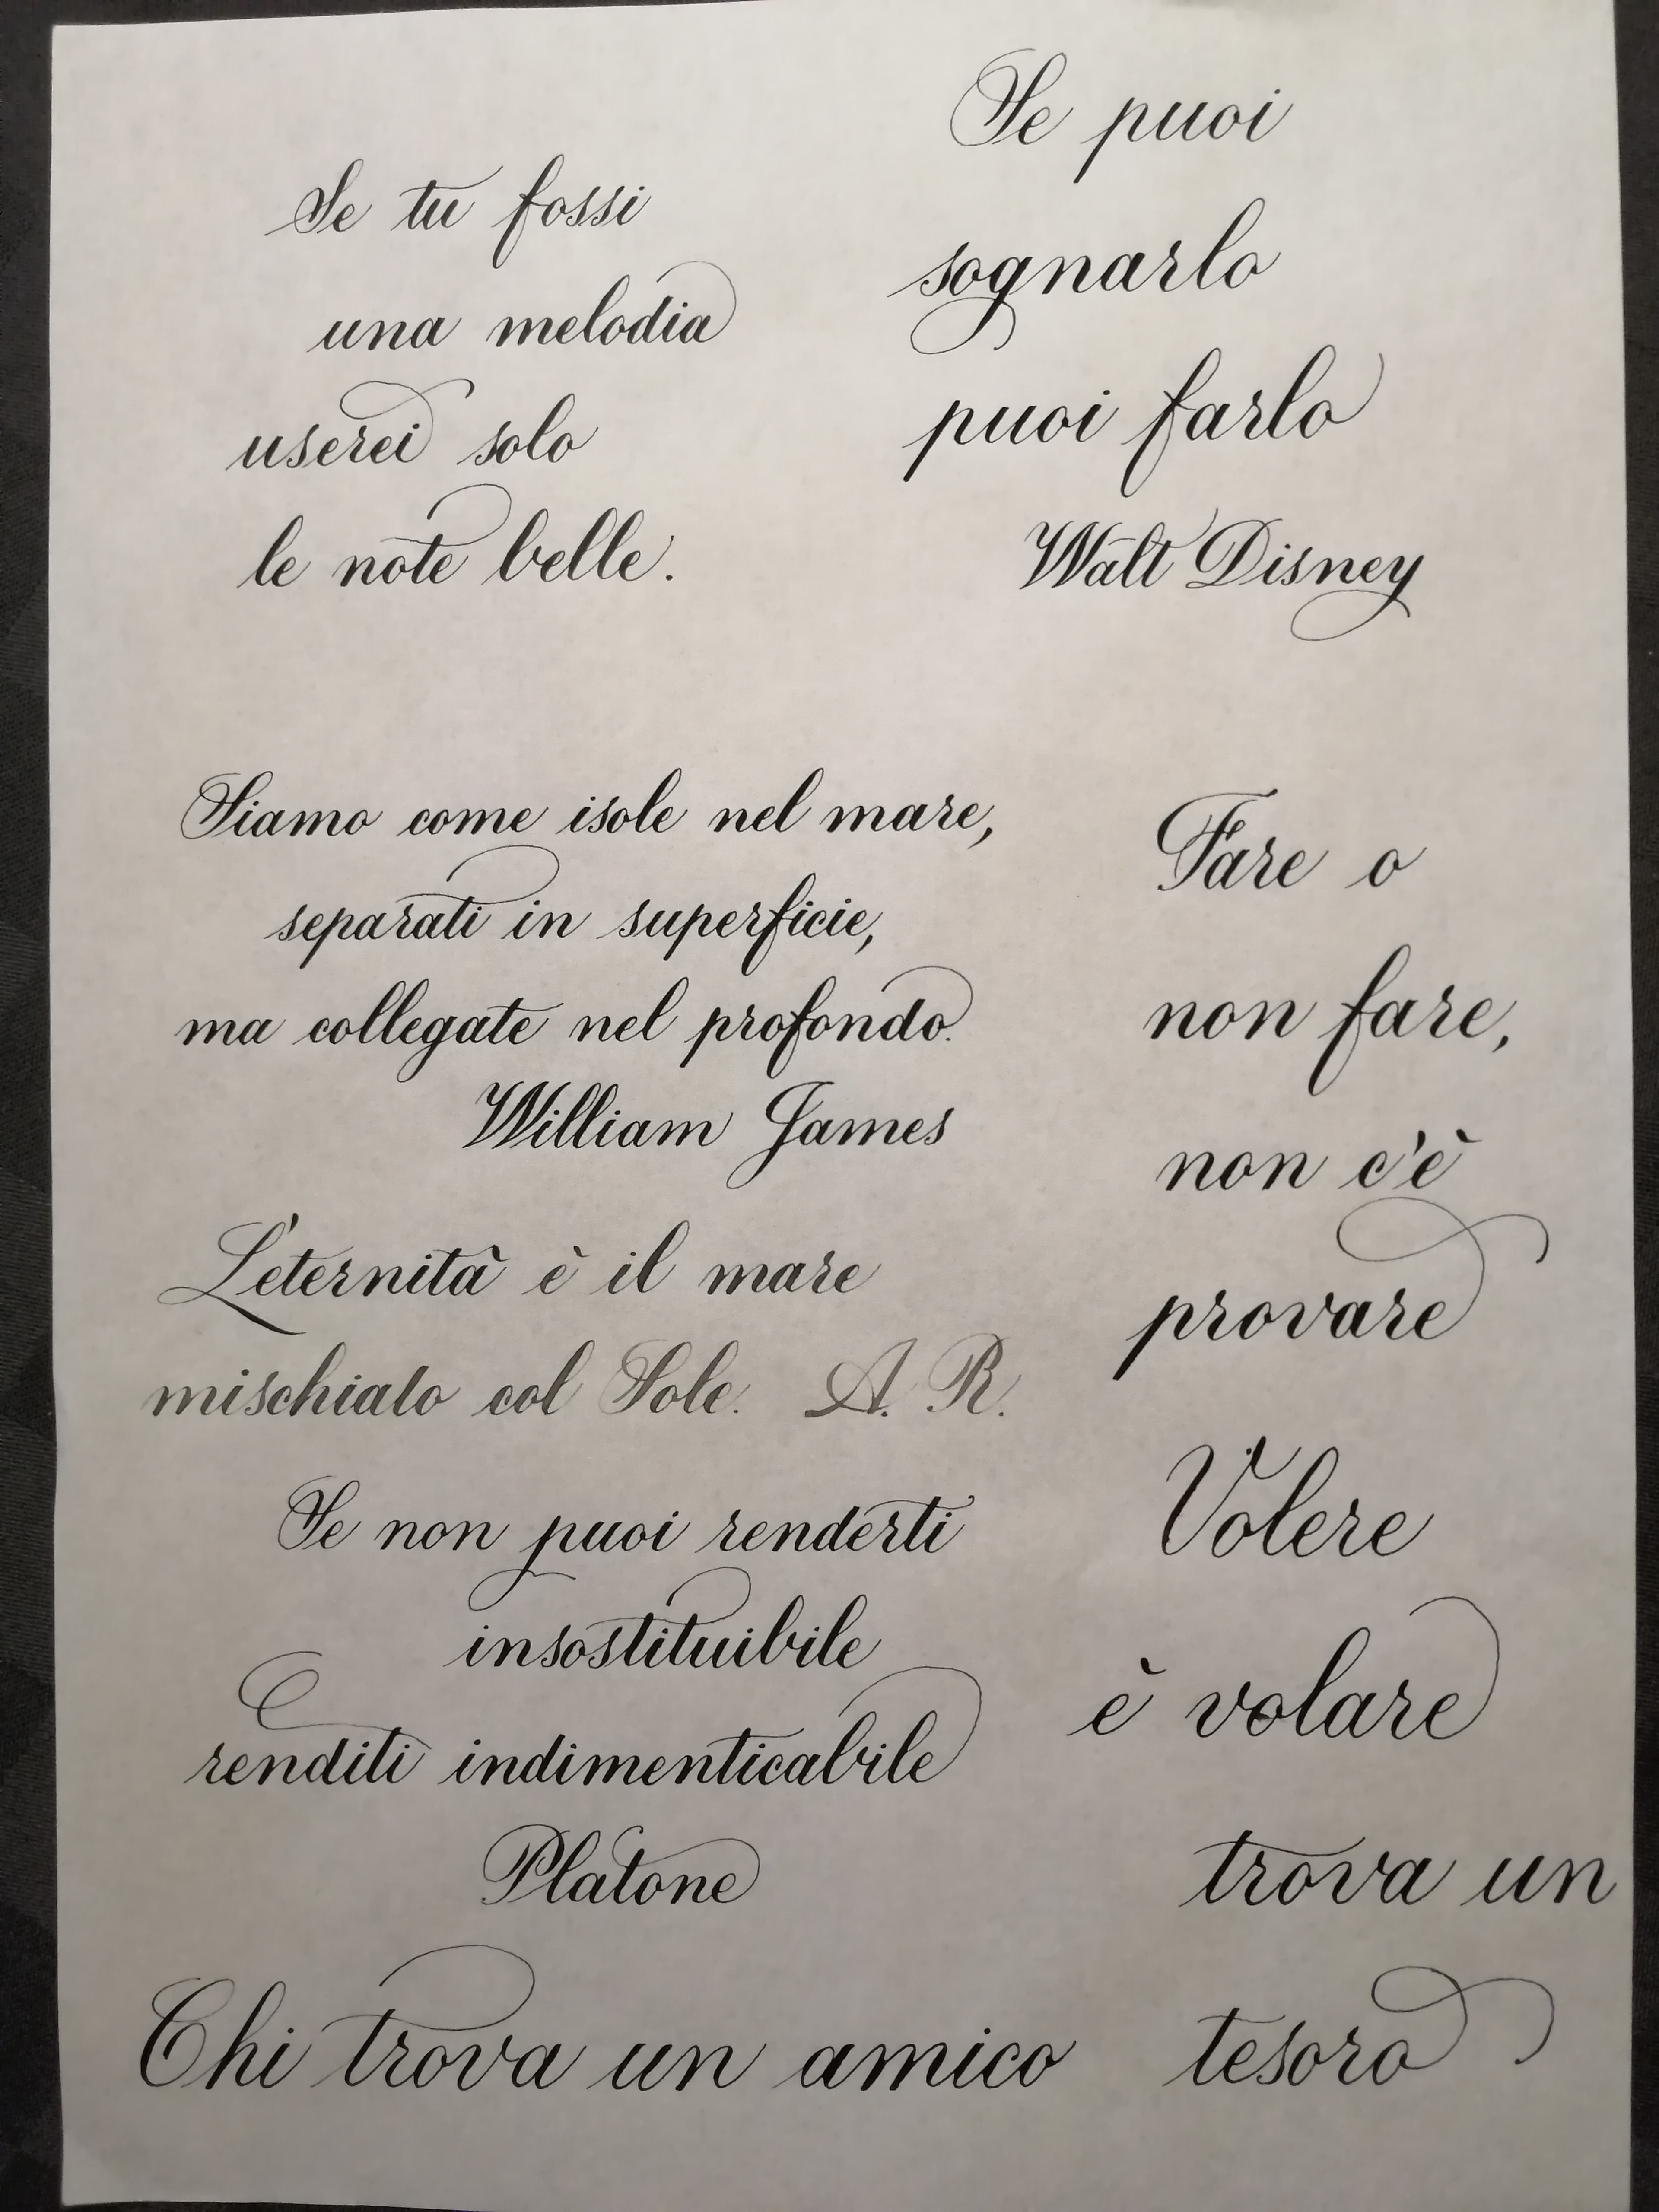 Se tu fossi
una melodia
userei solo
le note belle.
Se puoi
sognarlo
puoi farlo
Walt Disney
Siamo come isole nel mare,
separati in superficie,
ma collegate nel profondo.
William James
Fare o
non fare,
non c'è
provare
L'eternità è il mare
mischiato col Sole. A. R.
Se non puoi renderti
insostituibile
renditi indimenticabile
Platone
Volere
è volare
Chi trova un amico
trova un
tesoro